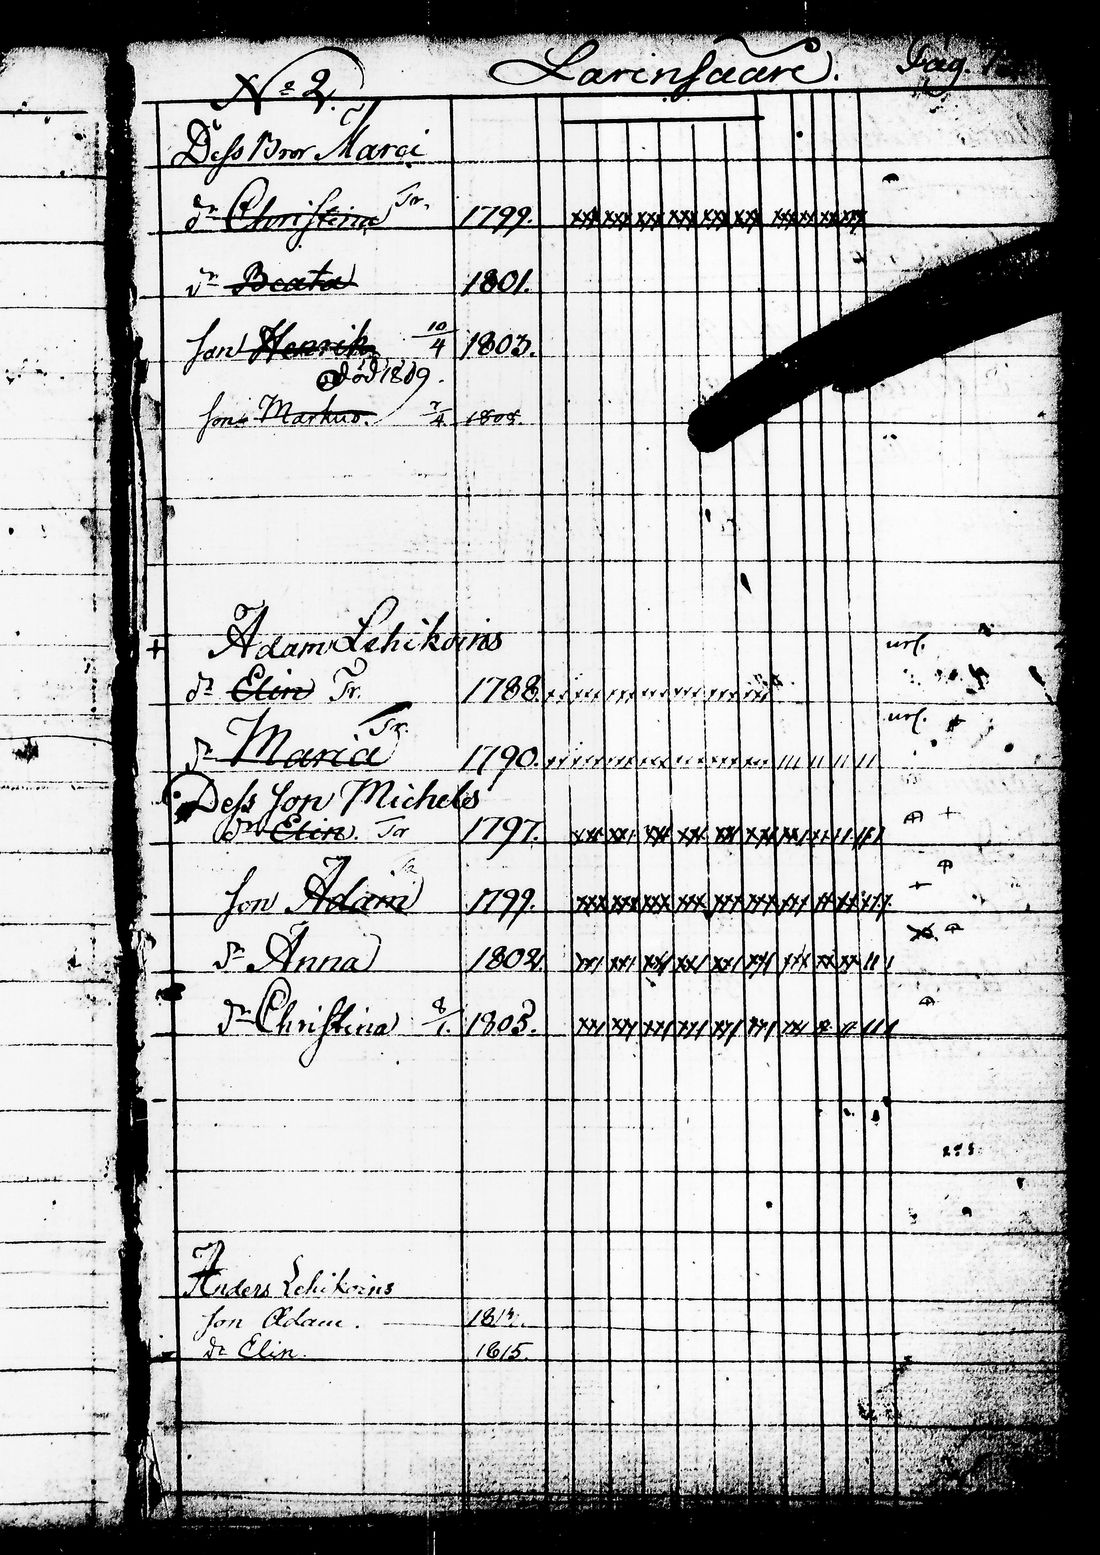 No 2. Larinsaari. Pag.
Dess Bror Marci
dr Christina Tr. 1799.
dr Beata 1801.
Son Henrik 10/4 1803.
död 1809.
Son Markus. 7/4 1808.
+ Adam Lehikoins url.
dr Elin Tr. 1788.
url.
dr Maria Tr. 1790.
Dess Son Michels
dr Elin. Tr 1797.
Son Adam 1799.
dr Anna 1802.
dr Christina 8/1. 1803.
Anders Lehikoins
Son Adam.
dr Elin. 1815.